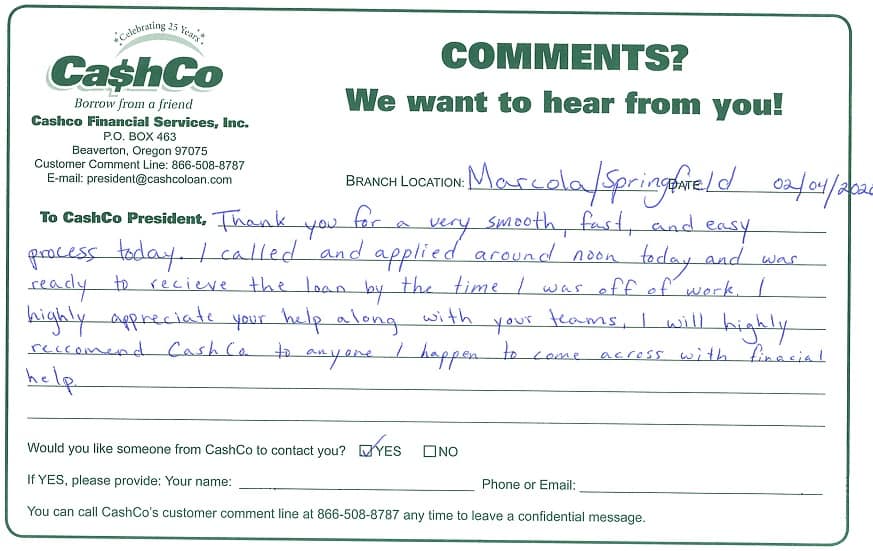 Celebrating 25 Years
Ca$hCo
Borrow from a friend
Cashco Financial Services, Inc.
P.O. BOX 463
Beaverton, Oregon 97075
Customer Comment Line: 866-508-8787
E-mail: president@cashcoloan.com
COMMENTS?
We want to hear from you!
BRANCH LOCATION: Marcola/Springfield DATE: 02/04/2020
To CashCo President, Thank you for a very smooth, fast, and easy
process today. I called and applied around noon today and was
ready to recieve the loan by the time I was off of work. I
highly appreciate your help along with your teams. I will highly
reccomend CashCo to anyone I happen to come across with finacial
help.
Would you like someone from CashCo to contact you? ☑YES ☐NO
If YES, please provide: Your name: Phone or Email:
You can call CashCo's customer comment line at 866-508-8787 any time to leave a confidential message.